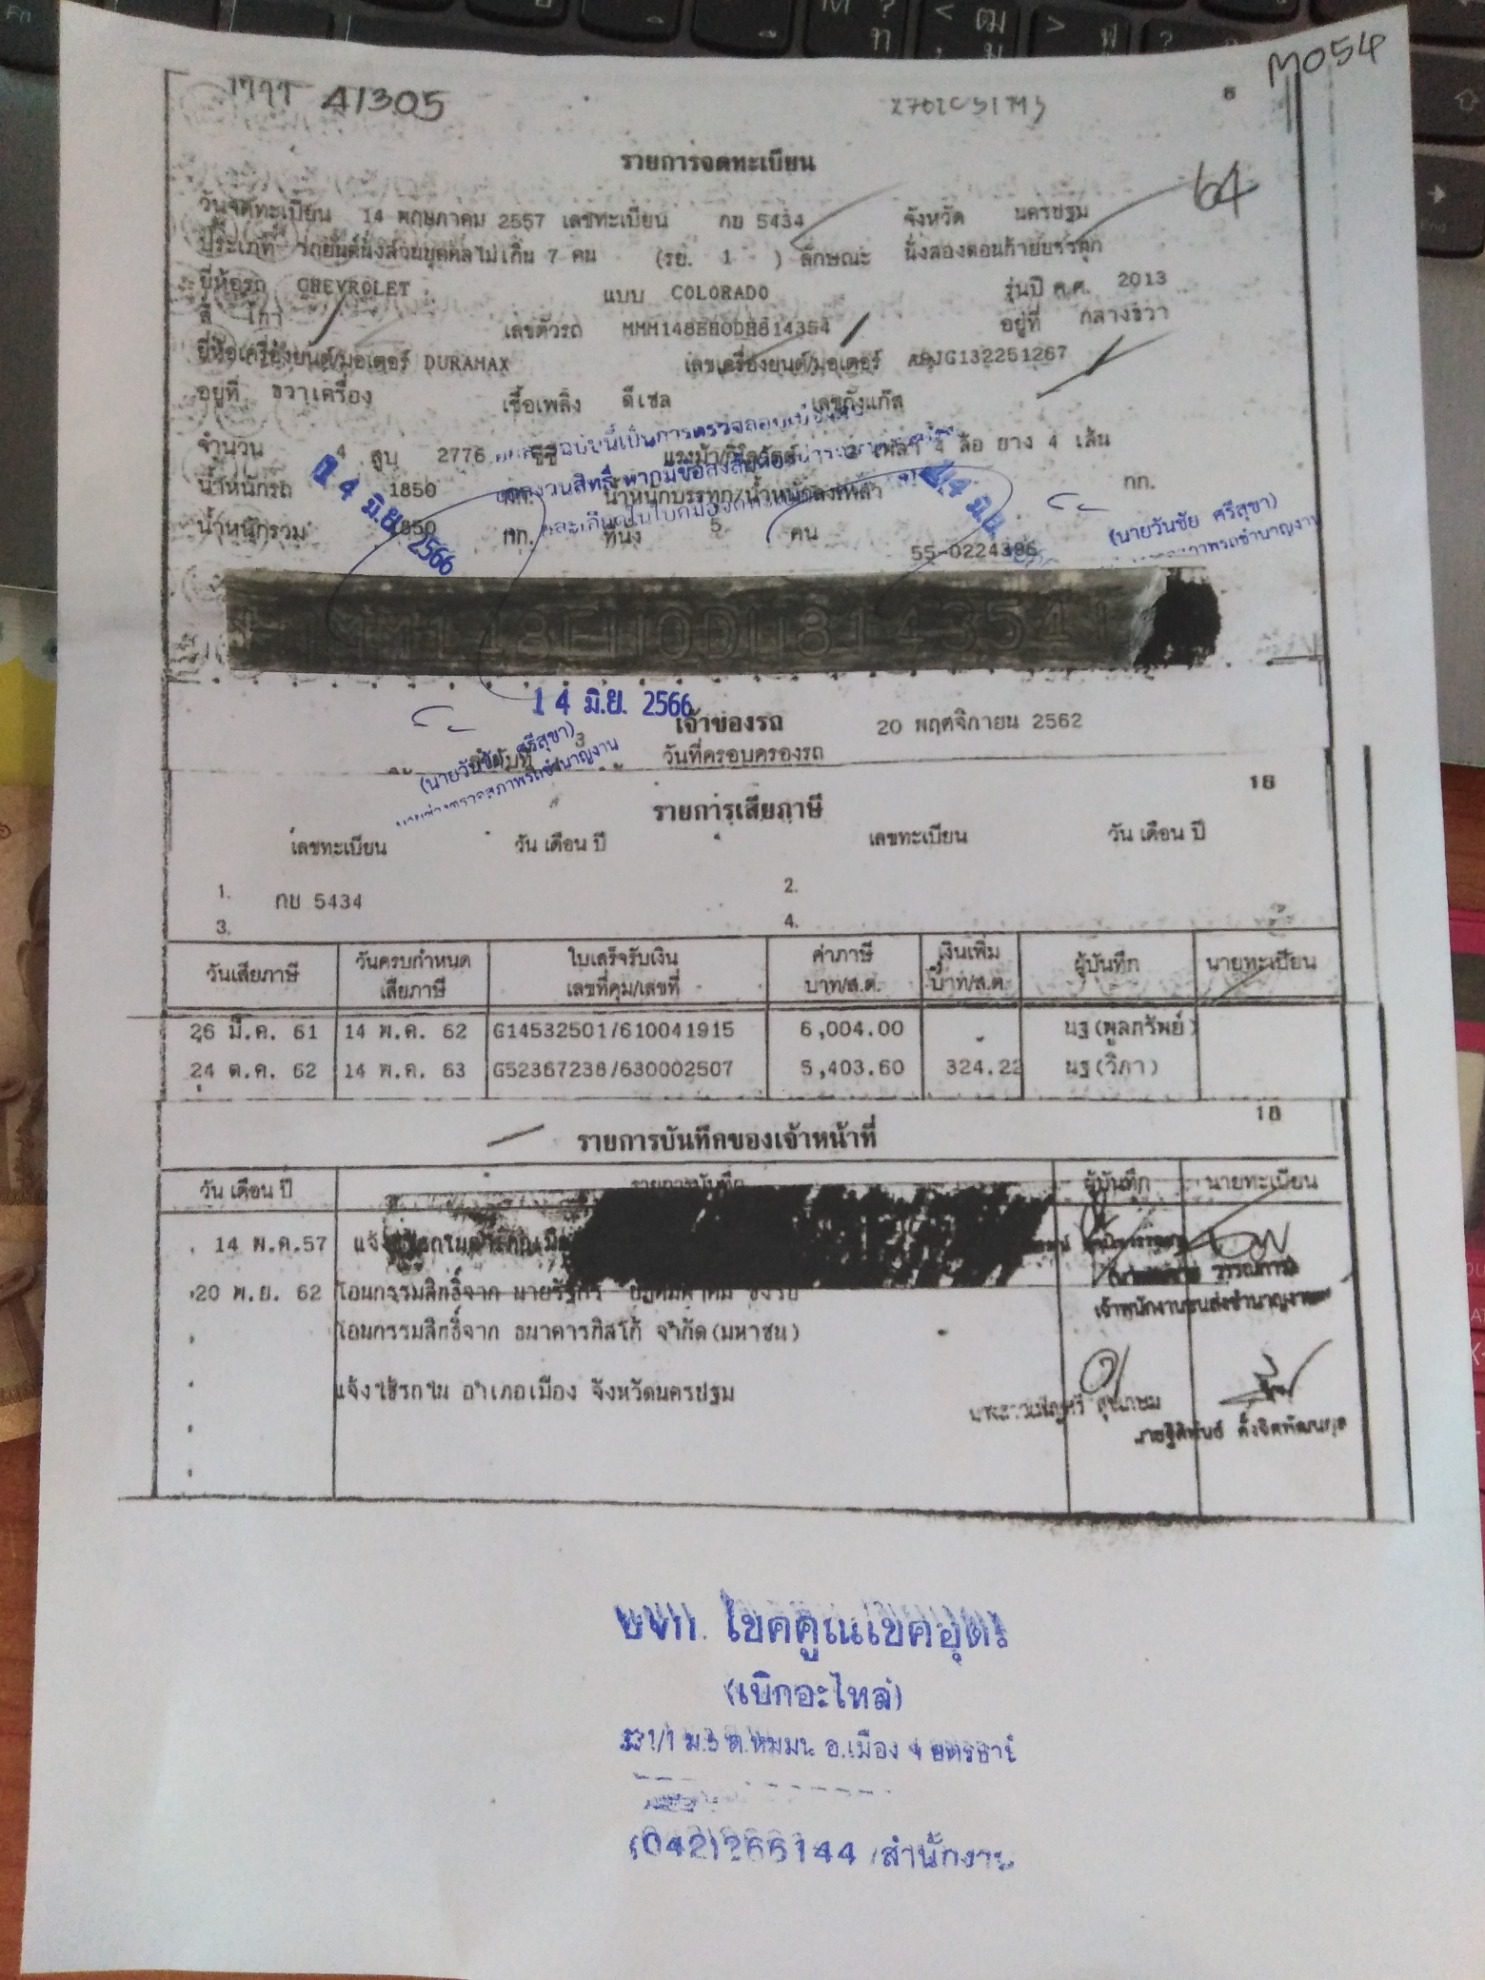 M054
41305
6
รายการจดทะเบียน
64
วันจดทะเบียน 14 พฤษภาคม 2557 เลขทะเบียน กย 5434 จังหวัด นครปฐม
ประเภท รถยนต์นั่งส่วนบุคคลไม่เกิน 7 คน (รย. 1 ) ลักษณะ นั่งสองตอนท้ายบรรทุก
ยี่ห้อรถ CHEVROLET แบบ COLORADO รุ่นปี ค.ศ. 2013
สี เทา เลขตัวรถ MMM148EH0DH814354 อยู่ที่ กลางขวา
ยี่ห้อเครื่องยนต์/มอเตอร์ DURAMAX เลขเครื่องยนต์/มอเตอร์ JG132251267
อยู่ที่ ขวาเครื่อง เชื้อเพลิง ดีเซล เลขถังแก๊ส
จำนวน 4 สูบ 2776 ซีซี เพลา 4 ล้อ ยาง 4 เส้น
น้ำหนักรถ 1850 กก. น้ำหนักบรรทุก/น้ำหนักลงเพลา กก.
น้ำหนักรวม 1850 กก. ที่นั่ง 5 คน
14 มิ.ย. 2566
(นายวันชัย ศรีสุขา)
55-0224396
MM148EH0DH814354
14 มิ.ย. 2566
เจ้าของรถ 20 พฤศจิกายน 2562
ลำดับที่ 3 วันที่ครอบครองรถ
(นายวันชัย ศรีสุขา)
18
รายการเสียภาษี
เลขทะเบียน วัน เดือน ปี เลขทะเบียน วัน เดือน ปี
1. กย 5434 2.
3. 4.
วันเสียภาษี วันครบกำหนดเสียภาษี ใบเสร็จรับเงิน เลขที่คุม/เลขที่ ค่าภาษี บาท/ส.ต. เงินเพิ่ม บาท/ส.ต. ผู้บันทึก นายทะเบียน
26 มี.ค. 61 14 พ.ค. 62 G14532501/610041915 6,004.00 - นฐ(พูลทรัพย์)
24 ต.ค. 62 14 พ.ค. 63 G52367238/630002507 5,403.60 324.22 นฐ(วิภา)
18
รายการบันทึกของเจ้าหน้าที่
วัน เดือน ปี รายการบันทึก ผู้บันทึก นายทะเบียน
14 พ.ค.57 แจ้ง
เจ้าพนักงานขนส่งชำนาญงาน
20 พ.ย. 62 โอนกรรมสิทธิ์จาก
โอนกรรมสิทธิ์จาก ธนาคารทิสโก้ จำกัด(มหาชน)
แจ้งใช้รถใน อำเภอเมือง จังหวัดนครปฐม
หจก. โชคคูณโชคอุดร
(เบิกอะไหล่)
ม.3 ต.หมูม่น อ.เมือง จ อุดรธานี
(042)266144 /สำนักงาน